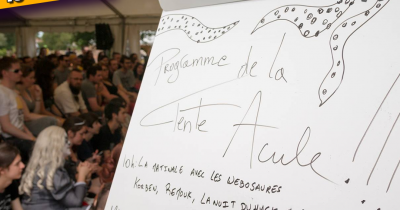 Programme de la
Tente Acule !!
10h LA MATINALE AVEC LES WEBOSAURES
KORBEN, REMOUR, LA NUIT DU HACK